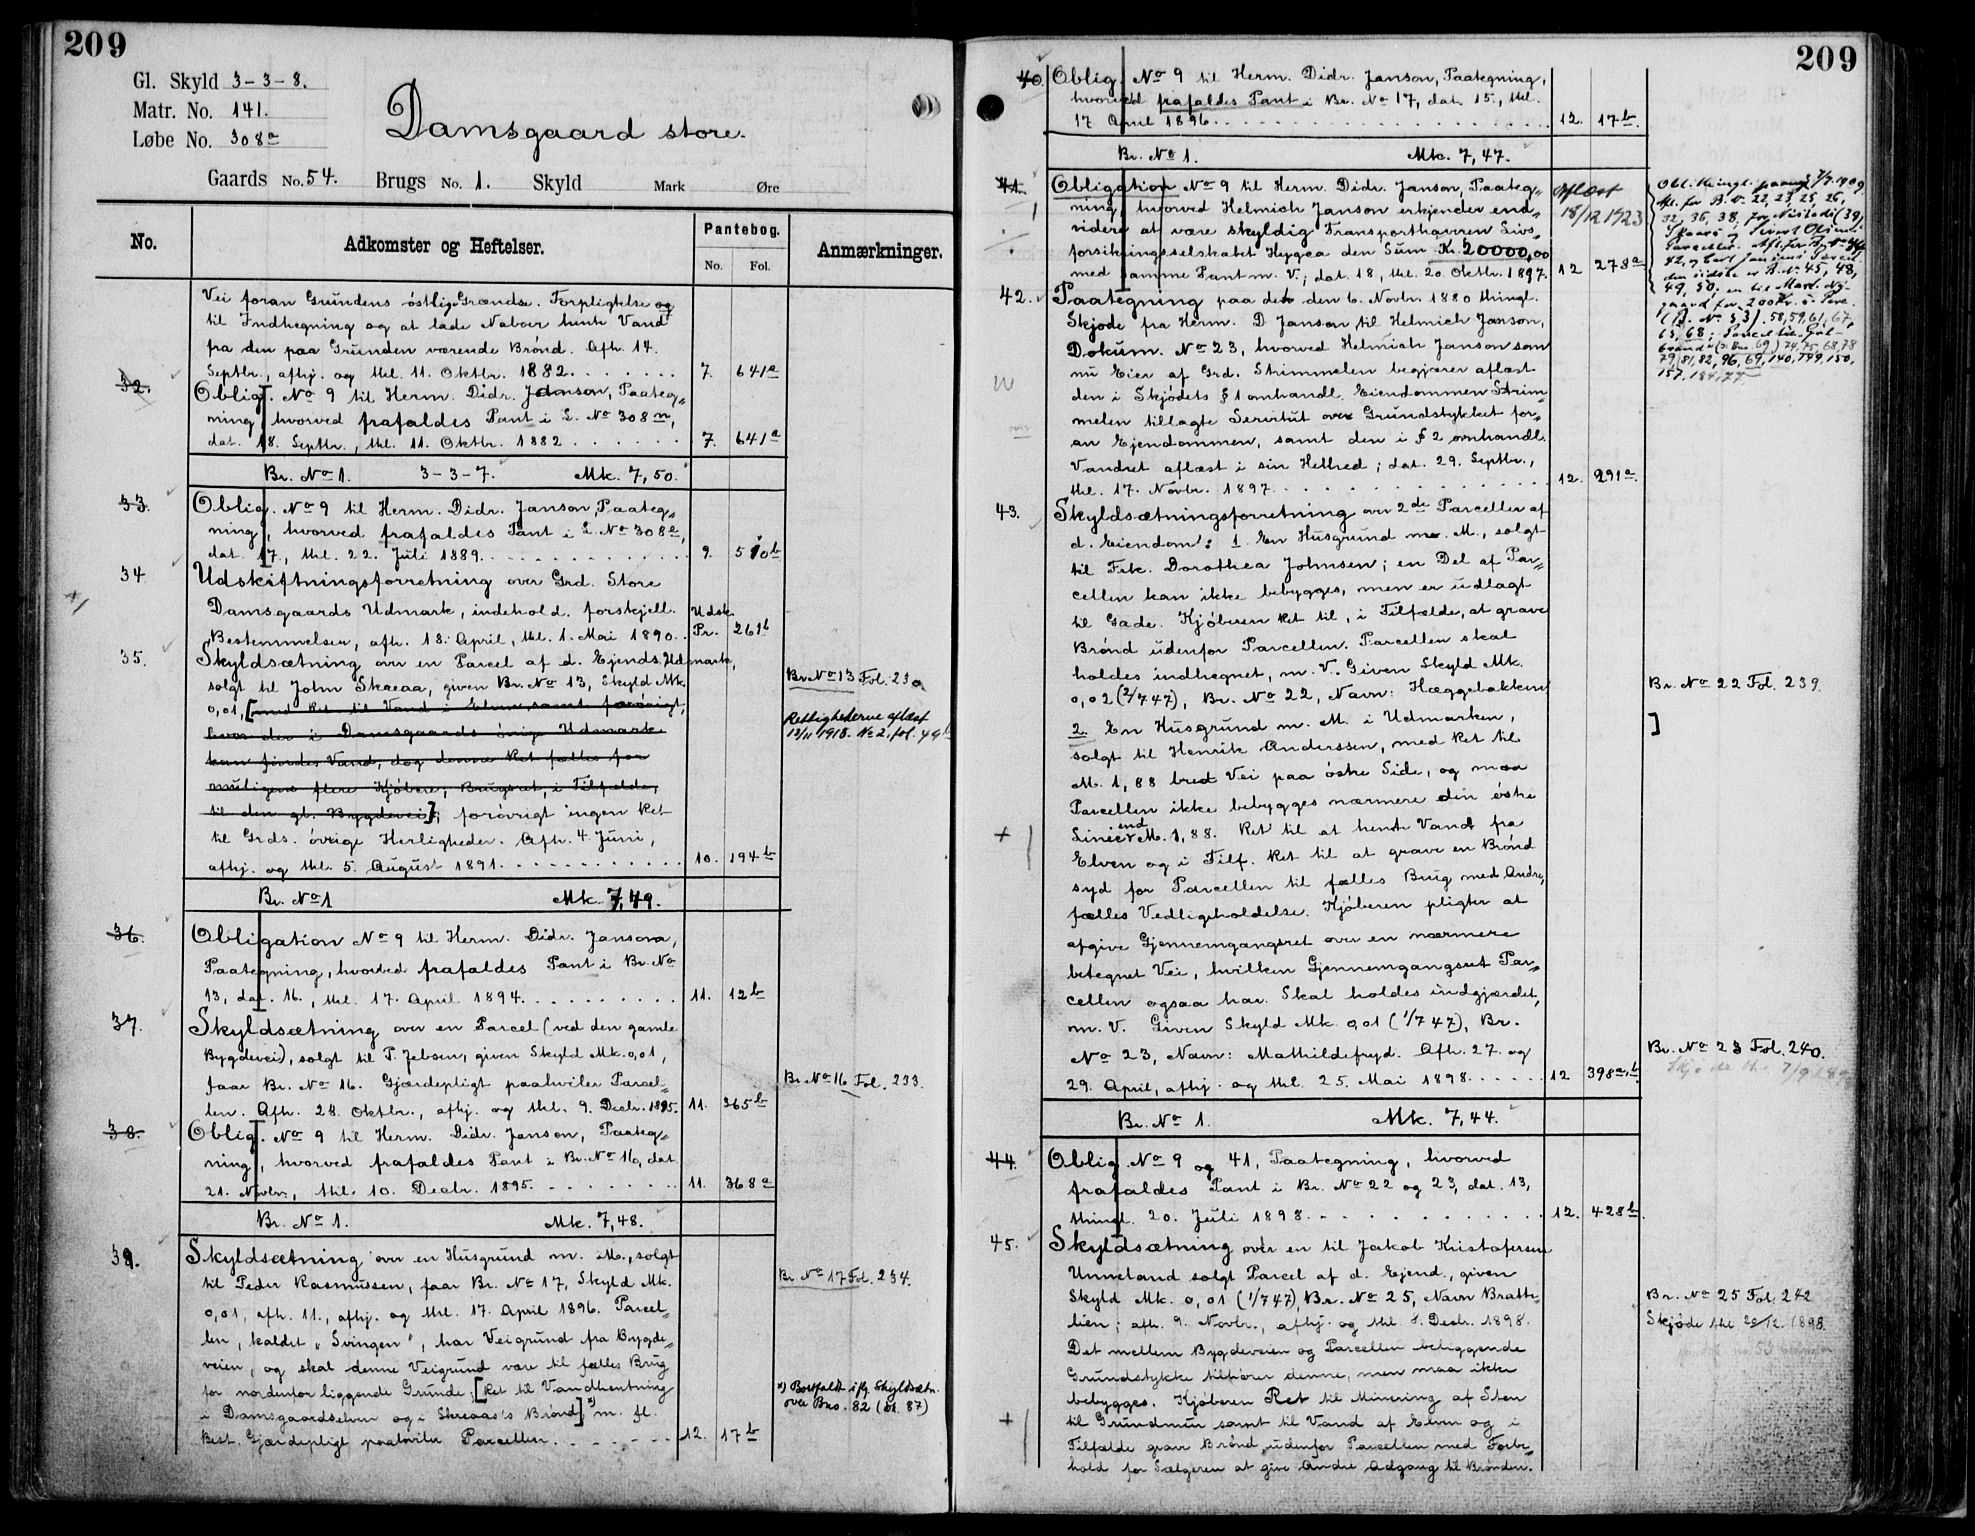 209
Gl. Skyld 3-3-8.
Matr. No. 141.
Løbe No. 308a
Damsgaard store.
Gaards No. 54. Brugs No. 1. Skyld Mark Øre
No. Adkomster og Heftelser. Pantebog. No. Fol. Anmærkninger.
Vei foran Grundens østlige Grændse. Forpligtelse og
til Indhegning og at lade Naboer hente Vand
fra den paa Grunden værende Brønd. Afh. 14.
Septbr., afhj. og thl. 11. Oktbr. 1882. 7. 641a
32. Oblig. No 9 til Herm. Didr. Janson, Paateg-
ning, hvorved frafaldes Pant i L. No 308m,
dat. 18. Septbr., thl. 11. Oktbr. 1882 7. 641a
Br. No 1. 3-3-7. Mk. 7,50.
33. Oblig. No 9 til Herm. Didr. Janson, Paateg-
ning, hvorved frafaldes Pant i L No 308e,
dat. 17, thl. 22. Juli 1889. 9. 510b
34 Udskiftningsforretning over Grd. Store
Damsgaards Udmark, indehold. forskjell. Udsk.
Bestemmelser, afh. 18. April, thl. 1. Mai 1890. Pr. 261b
35. Skyldsætning over en Parcel af d. Ejends. Udmark,
solgt til John Skaeaa, given Br. No 13, Skyld Mk. Br No 13 Fol. 230
0,01, [med Ret til Vand i Elven samt forøvrigt,
hvor der i Damsgaards øvrige Udmark Rettighederne aflæst
kan findes Vand, dog denne Ret fælles for 13/11 1918. No 2. fol. 49b
muligens flere Kjøbere; Brugsret, i Tilfælde,
til den gl. Bygdevei]; forøvrigt ingen Ret
til Grds. øvrige Herligheder. Afh. 4. Juni,
afhj. og thl. 5. August 1891. 10. 194b
Br. No 1 Mk. 7,49.
36. Obligation No 9 til Herm. Didr. Janson,
Paategning, hvorved frafaldes Pant i Br. No
13, dat. 16., thl. 17. April 1894. 11. 12b
37. Skyldsætning over en Parcel (ved den gamle
Bygdevei), solgt til P. Jebsen, given Skyld Mk. 0,01,
faar Br. No 16. Gjærdepligt paahviler Parcel- Br No 16 Fol. 233.
len. Afh. 28. Oktbr., afhj. og thl. 9. Decbr. 1895. 11. 365b
38. Oblig. No 9 til Herm. Didr. Janson, Paateg-
ning, hvorved frafaldes Pant i Br. No 16, dat.
21. Novbr., thl. 10. Decbr. 1895. 11. 368a
Br. No 1. Mk. 7,48.
39. Skyldsætning over en Husgrund m. M., solgt
til Peder Rasmussen, faar Br. No 17, Skyld Mk. Br No 17 Fol. 234.
0,01, afh. 11., afhj. og thl. 17. April 1896. Parcel-
len, kaldet „Svingen", har Veigrund fra Bygde-
veien, og skal denne Veigrund være til fælles Brug
for nordenfor liggende Grunde; [Ret til Vandhentning x) Bortfaldt ifg. Skyldsætn.
i Damsgaardselven og i Skreaas's Brønd] x) m. fl. over Bno. 82 (bl. 87)
Best. Gjærdepligt paahviler Parcellen. 12. 17b
209
40. Oblig. No 9 til Herm. Didr. Janson, Paategning,
hvorved frafaldes Pant i Br. No 17, dat. 15., thl.
17 April 1896. 12. 17b.
Br. No 1. Mk. 7,47.
41. Obligation No 9 til Herm. Didr. Janson, Paateg- Aflæst
ning, hvorved Helmich Janson erkjender end- 18/12 1923
videre at være skyldig Transporthaveren Livs-
forsikringsselskabet Hygea den Sum Kr. 20000,00
med samme Pant m. V.; dat. 18, thl. 20. Oktbr. 1897. 12 278a
42. Paategning paa det den 6. Novbr. 1880 thingl.
Skjøde fra Herm. D Janson til Helmich Janson,
Dokum. No 23, hvorved Helmich Janson som
nu Eier af Grd. Strimmelen begjærer aflæst
den i Skjødets § 1 omhandl. Eiendommen Strim-
melen tillagte Servitut over Grundstykket for-
an Ejendommen, samt den i § 2 omhandl.
Vandret aflæst i sin Helhed; dat. 29. Septbr.,
thl. 17. Novbr. 1897. 12. 291a
43. Skyldsætningsforretning over 2de Parceller af
d. Eiendom: 1. En Husgrund m. M., solgt
til Frk. Dorothea Johnsen; en Del af Par-
cellen kan ikke bebygges, men er udlagt
til Gade. Kjøberen Ret til, i Tilfælde, at grave
Brønd udenfor Parcellen. Parcellen skal
holdes indhegnet, m. V. Given Skyld Mk.
0,02 (2/747), Br. No 22, Navn: Hæggebakken Br. No 22 Fol. 239.
2. En Husgrund m. M. i Udmarken,
solgt til Henrik Anderssen, med Ret til
M. 1,88 bred Vei paa østre Side, og maa
Parcellen ikke bebygges nærmere den østre
Linie end M. 1,88. Ret til at hente Vand fra
Elven og i Tilf. Ret til at grave en Brønd
syd for Parcellen til fælles Brug med Andre,
fælles Vedligeholdelse. Kjøberen pligter at
afgive Gjennemgangsret over en nærmere
betegnet Vei, hvilken Gjennemgangsret Par-
cellen ogsaa har. Skal holdes indgjærdet,
m. V. Given Skyld Mk. 0,01 (1/747), Br.
No 23, Navn: Mathildefryd. Afh. 27. og Br. No 23 Fol. 240.
29. April, afhj. og thl. 25. Mai 1898. 12 398a,b
Br. No 1. Mk. 7,44.
44. Oblig. No 9 og 41, Paategning, hvorved
frafaldes Pant i Br. No 22 og 23, dat. 13,
thingl. 20. Juli 1898. 12. 428b.
45. Skyldsætning over en til Jakob Kristofersen
Unneland solgt Parcel af d. Ejend., given
Skyld Mk. 0,01 (1/747), Br. No 25, Navn Bratte- Br. No 25 Fol. 242
lien; afh. 9. Novbr., afhj. og thl. 8. Decbr. 1898. Skjøde thl 20/12 1898.
Det mellem Bygdeveien og Parcellen beliggende
Grundstykke tilhører denne, men maa ikke
bebygges. Kjøberen Ret til Minering af Sten
til Grundmur samt til Vand af Elven og i
Tilfælde grave Brønd udenfor Parcellen med Forbe-
hold for Sælgeren at give Andre Adgang til Brønden.